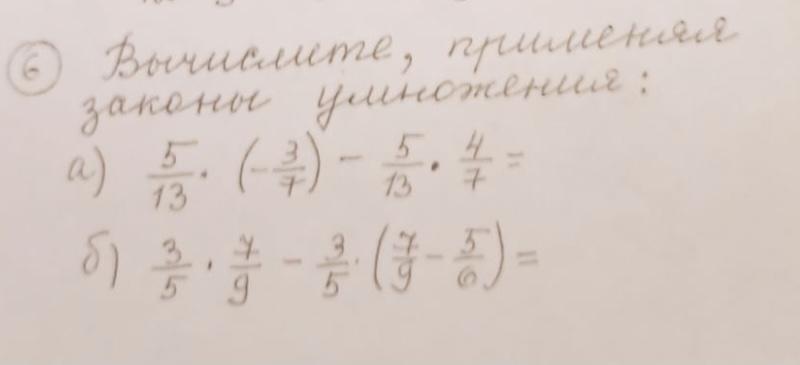 6 Вычислите, применяя
законы умножения:
а) 5/13 · (-3/7) - 5/13 · 4/7 =
б) 3/5 · 7/9 - 3/5 · (7/9 - 5/6) =